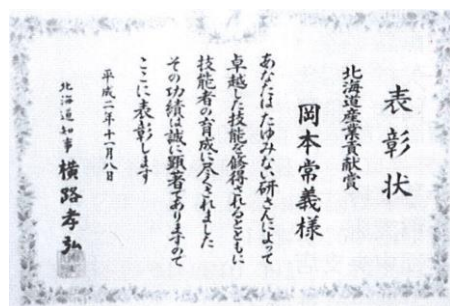 表彰状
北海道産業貢献賞
岡本常義様
あなたはたゆみない研さんによって
卓越した技能を修得されるとともに
技能者の育成に尽くされました
その功績は誠に顕著でありますので
ここに表彰します
平成二年十一月八日
北海道知事 横路孝弘